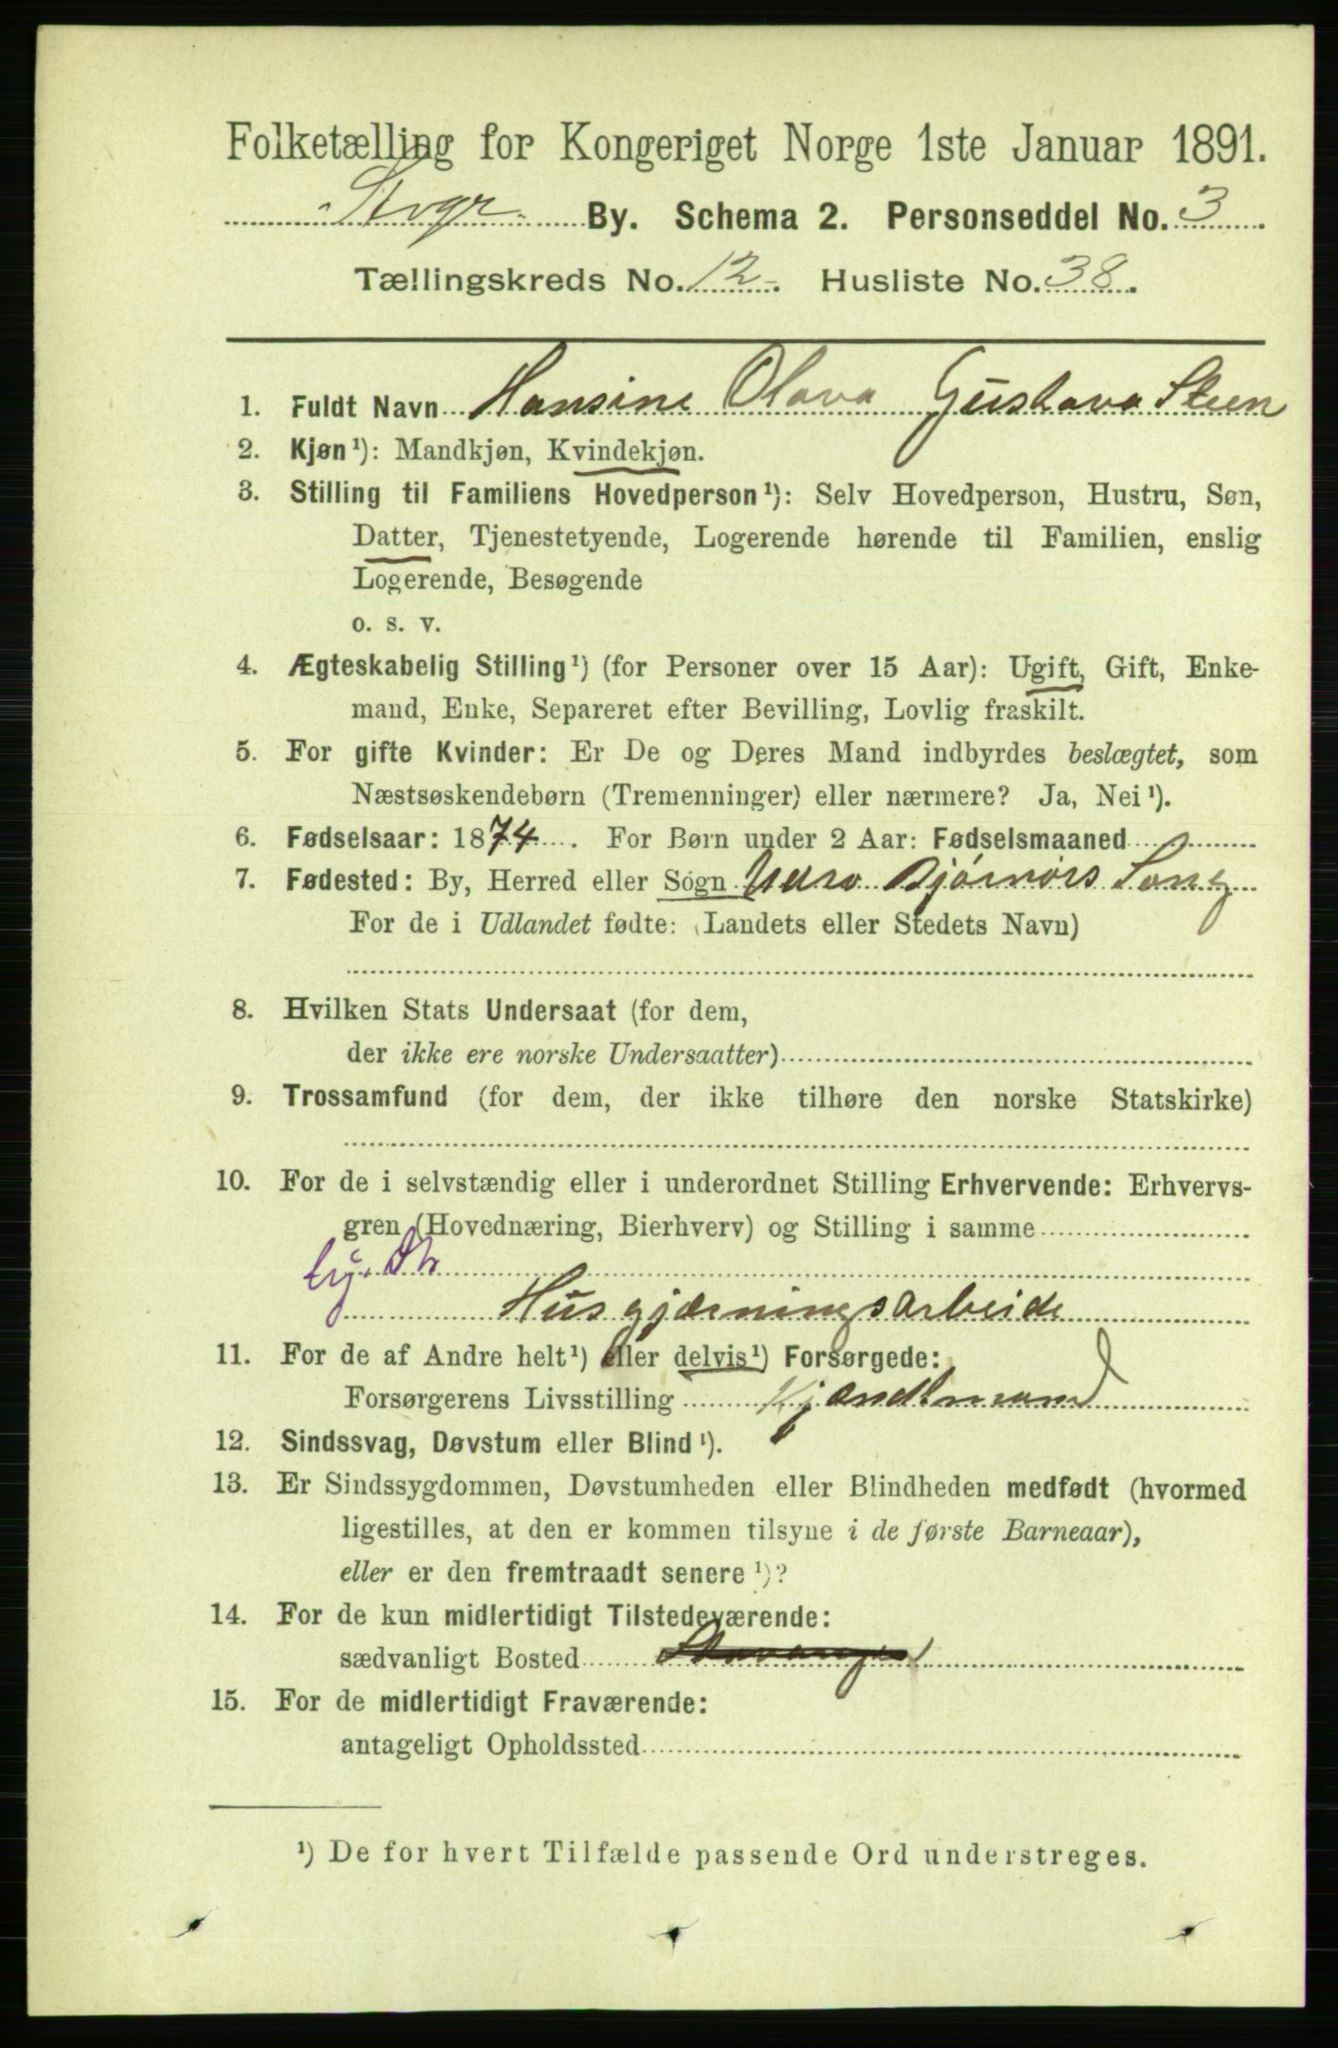 Folketælling for Kongeriget Norge 1ste Januar 1891.
Stvgr By. Schema 2. Personseddel No. 3
Tællingskreds No. 12. Husliste No. 38.
1. Fuldt Navn Hansine Olava Gustava Steen
2. Kjøn¹): Mandkjøn, Kvindekjøn.
3. Stilling til Familiens Hovedperson¹): Selv Hovedperson, Hustru, Søn,
Datter, Tjenestetyende, Logerende hørende til Familien, enslig
Logerende, Besøgende
o. s. v.
4. Ægteskabelig Stilling¹) (for Personer over 15 Aar): Ugift, Gift, Enke-
mand, Enke, Separeret efter Bevilling, Lovlig fraskilt.
5. For gifte Kvinder: Er De og Deres Mand indbyrdes beslægtet, som
Næstsøskendebørn (Tremenninger) eller nærmere? Ja, Nei¹).
6. Fødselsaar: 1874. For Børn under 2 Aar: Fødselsmaaned
7. Fødested: By, Herred eller Sogn Bjørnørs
For de i Udlandet fødte: (Landets eller Stedets Navn)
8. Hvilken Stats Undersaat (for dem,
der ikke ere norske Undersaatter)
9. Trossamfund (for dem, der ikke tilhøre den norske Statskirke)
10. For de i selvstændig eller i underordnet Stilling Erhvervende: Erhvervs-
gren (Hovednæring, Bierhverv) og Stilling i samme
Husgjærningsarbeide
11. For de af Andre helt¹) eller delvis¹) Forsørgede:
Forsørgerens Livsstilling Kjøndtmand
12. Sindssvag, Døvstum eller Blind¹).
13. Er Sindssygdommen, Døvstumheden eller Blindheden medfødt (hvormed
ligestilles, at den er kommen tilsyne i de første Barneaar),
eller er den fremtraadt senere¹)?
14. For de kun midlertidigt Tilstedeværende:
sædvanligt Bosted Stavanger
15. For de midlertidigt Fraværende:
antageligt Opholdssted
¹) De for hvert Tilfælde passende Ord understreges.